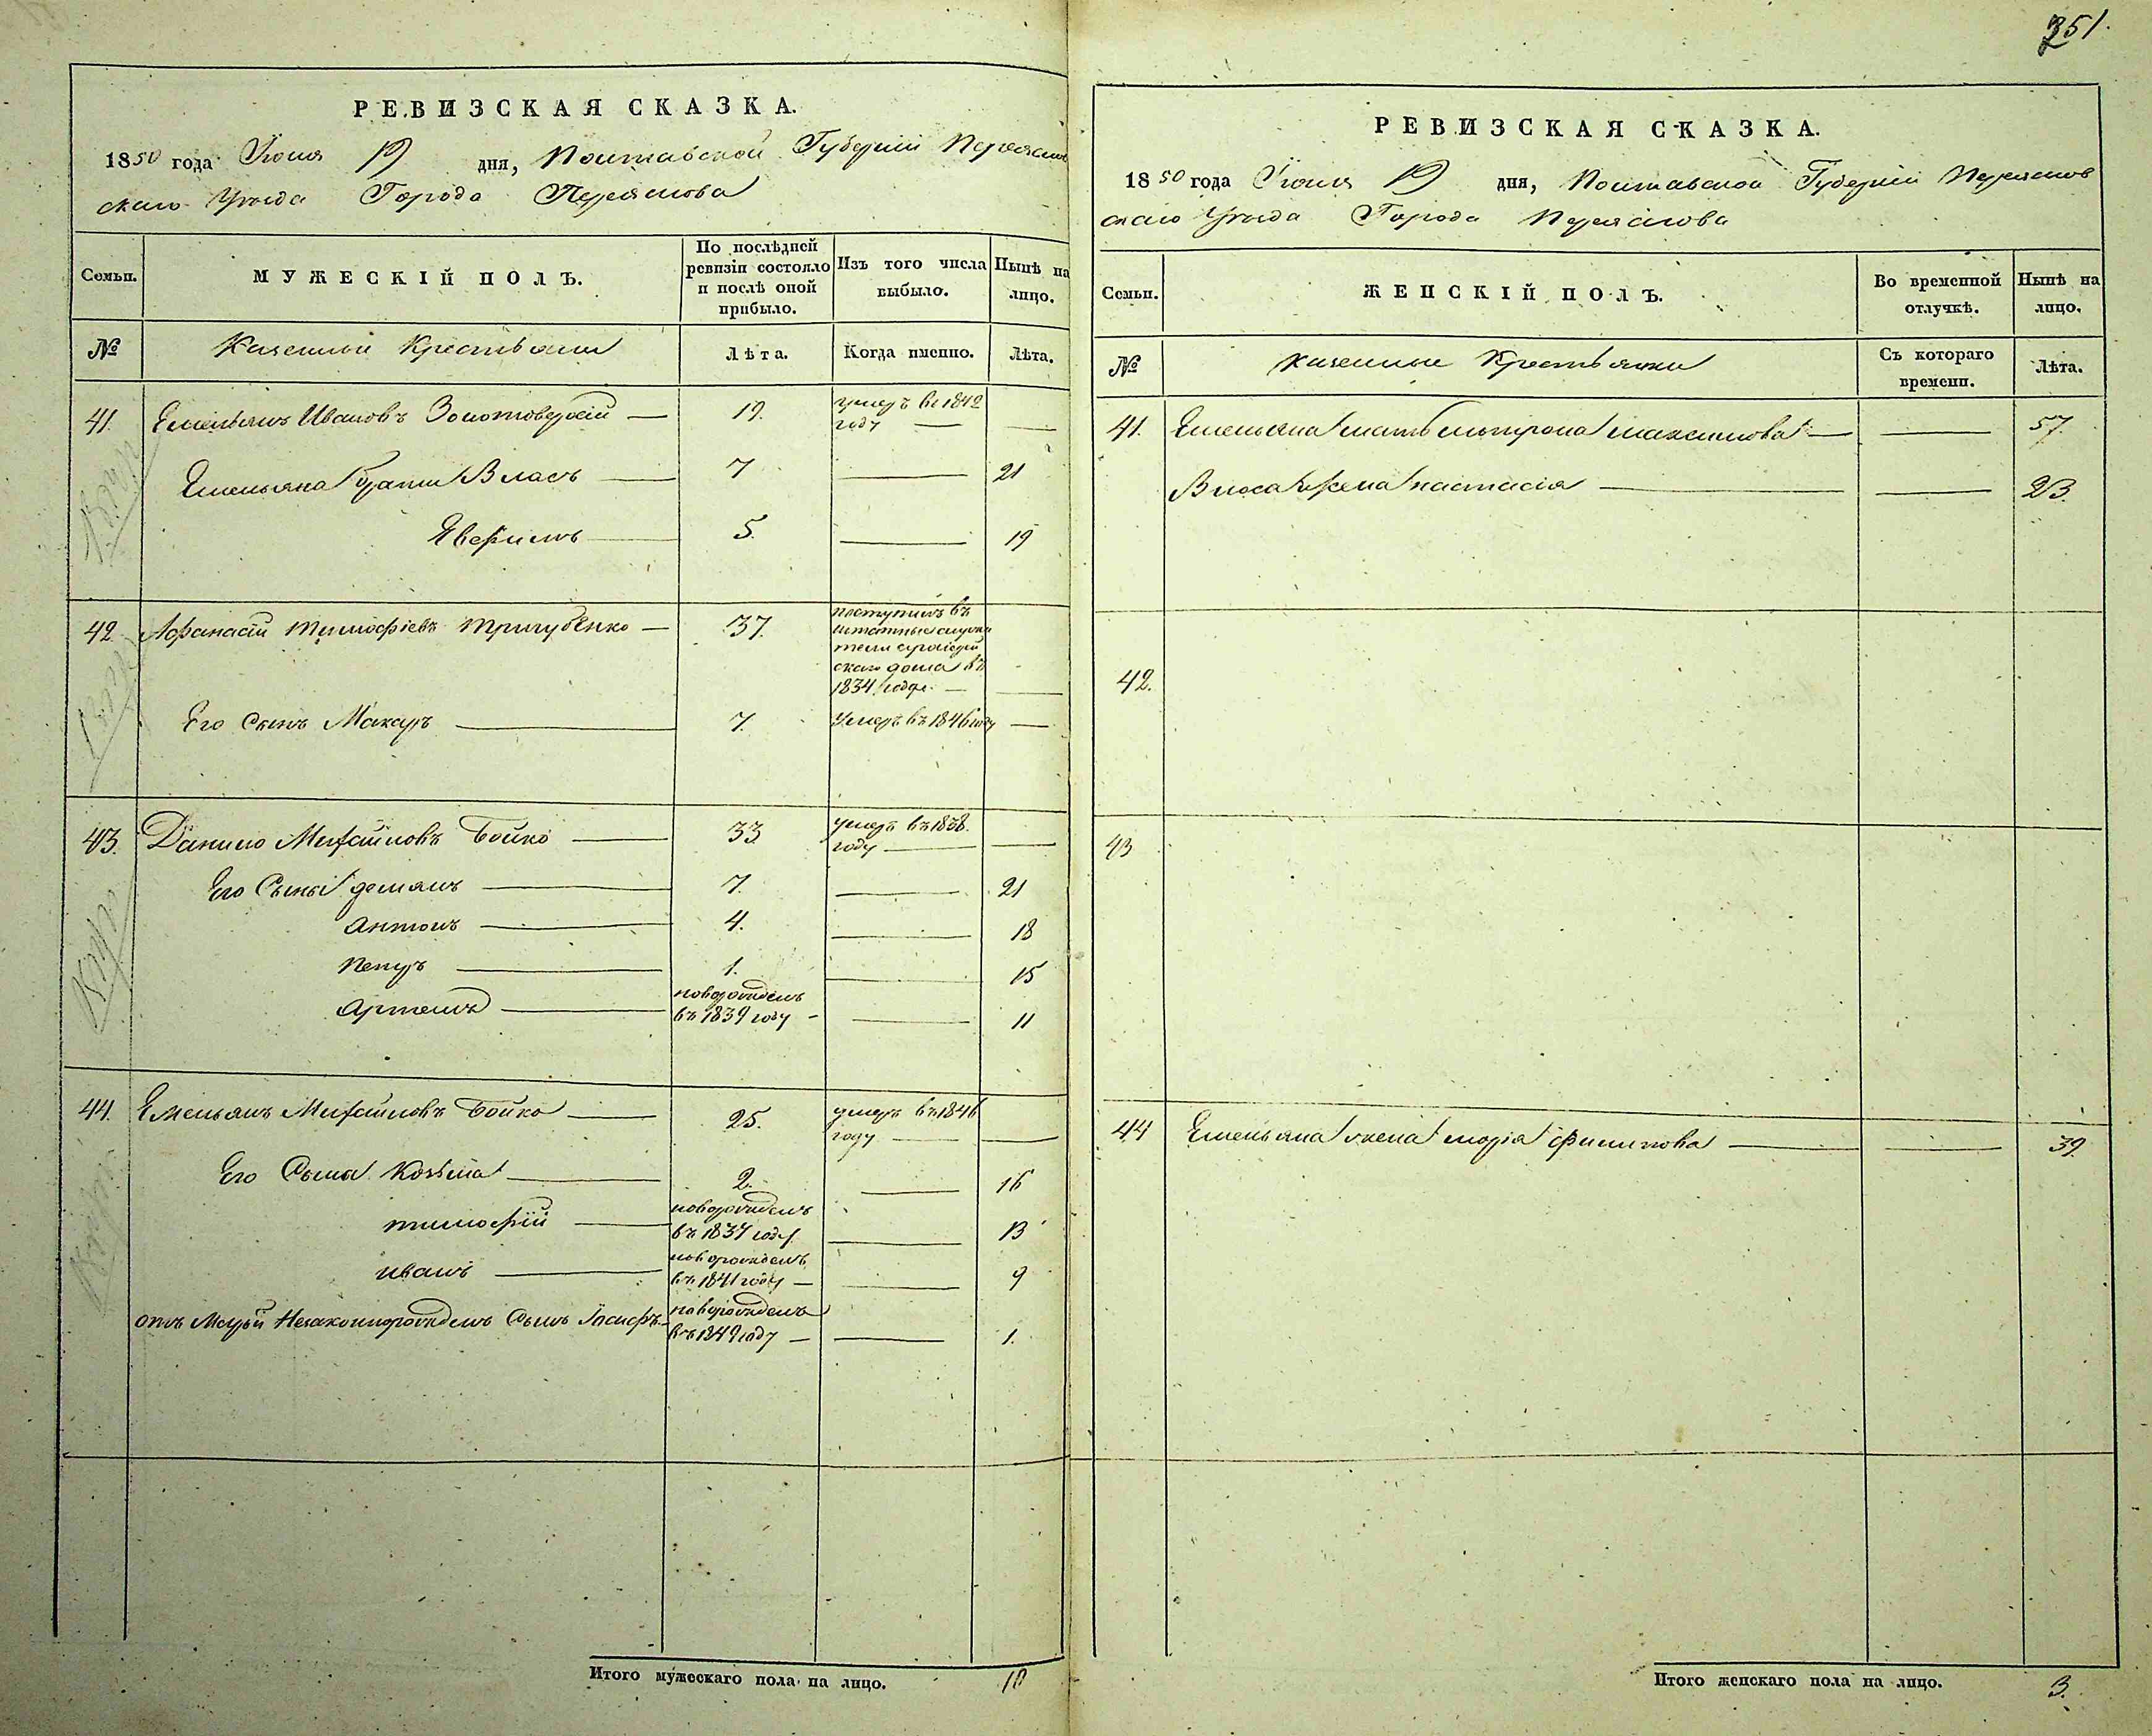 351.
РЕВИЗСКАЯ СКАЗКА.
1850 года Іюня 19 дня, Полтавской Губерніи Переяслов
скаго Уѣзда Города Переяслова
Семьи. МУЖЕСКІЙ ПОЛЪ. По послѣдней ревизіи состояло и послѣ оной прибыло. Изъ того числа выбыло. Нынѣ на лицо.
№ Казенные Крестьяне Лѣта. Когда именно. Лѣта.
41. Емельянъ Ивановъ Золотоверхій — 19. умеръ въ 1842 году — —
Емельяна братья Власъ — 7 — 21
5. — 19
42 Афанасій Тимофіевъ Тригубенко — 37. поступилъ въ штатные служи
тели
скаго дома въ
1834 годе. — —
Его Сынъ Макаръ — 7. Умеръ въ 1846 году —
43. Данило Михайловъ Бойко — 33 умеръ въ 1838. году — —
Его Сыны демянъ — 7. — 21
антонъ — 4. — 18
Петръ — 1. — 15
Артемъ — новорожденъ въ 1839 году — — 11
44. Емельянъ Михайловъ Бойко — 25. умеръ въ 1846 году — —
Его Сына Козьма — 2. — 16
тимофій — новорожденъ въ 1837 году — 13
иванъ — новорожденъ въ 1841 году — — 9
отъ Маріи Незаконнорожденъ Сынъ Іосифъ — новорожденъ въ 1849 году — — 1.
Итого мужескаго пола на лицо. 10
РЕВИЗСКАЯ СКАЗКА.
1850 года Іюня 19 дня, Полтавской Губерніи Переяслов
скаго Уѣзда Города Переяслова
Семьи. ЖЕНСКІЙ ПОЛЪ. Во временной отлучкѣ. Нынѣ на лицо.
№ Казенные Крестьянки Съ котораго времени. Лѣта.
41. Емельяна мать максимова — — 57.
Власа жена настасія — — 23.
42.
43
44 Емельяна жена марія филипова — — 39.
Итого женскаго пола на лицо. 3.